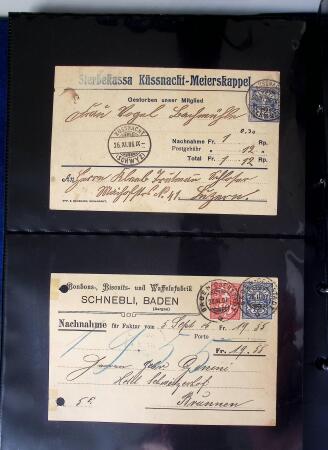 Sterbekassa Küssnacht-Meierskappel
Gestorben unser Mitglied
Frau Vogel Bachmühle
0,30
Nachnahme Fr. 1 Rp.
Postgebühr " 12 "
Total Fr. 1 12 Rp.
KÜSSNACHT
(SCHWYZ)
An Herrn
Luzern.
Bonbons-, Biscuits- und Waffelnfabrik
SCHNEBLI, BADEN
(Aargau)
Nachnahme für Faktur vom 5 Sept. Fr. 19.55
Porto
Fr. 19.55
1955
Herren Gebr.
Hotel Schweizerhof
Brunnen